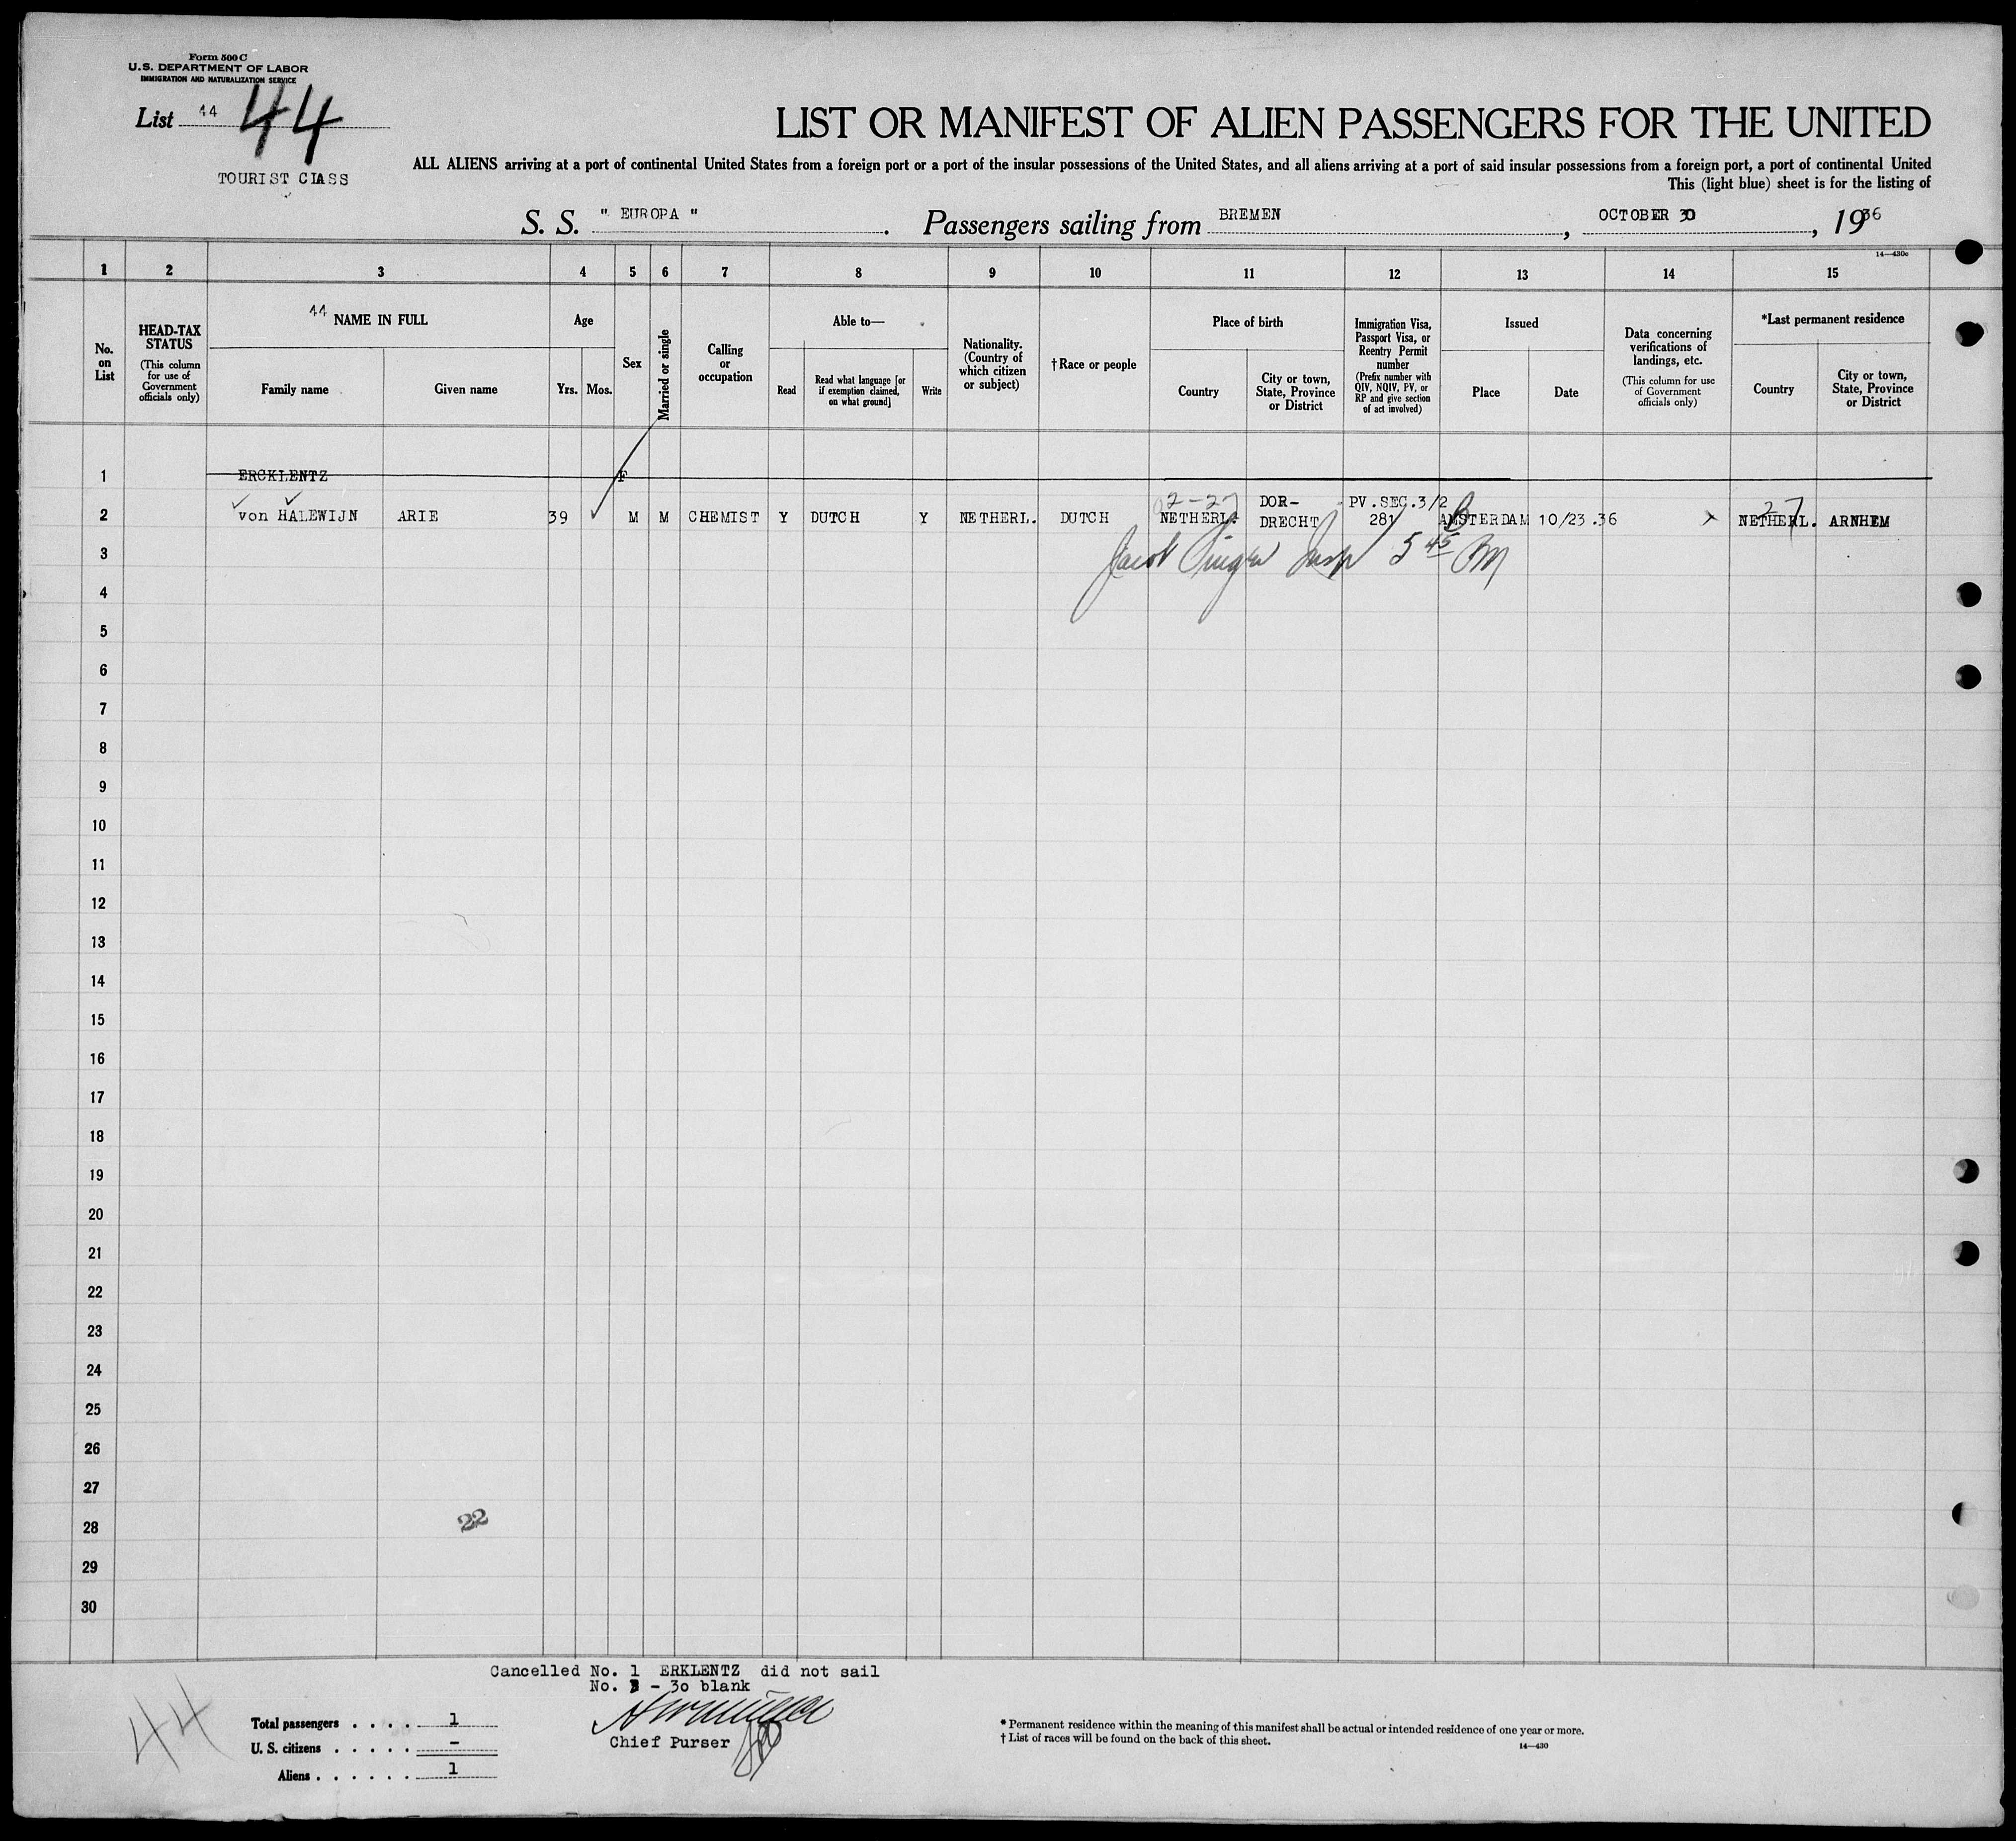 Form 500 C
U.S. DEPARTMENT OF LABOR
IMMIGRATION AND NATURALIZATION SERVICE
List 44 44
TOURIST CLASS
LIST OR MANIFEST OF ALIEN PASSENGERS FOR THE UNITED
ALL ALIENS arriving at a port of continental United States from a foreign port or a port of the insular possessions of the United States, and all aliens arriving at a port of said insular possessions from a foreign port, a port of continental United
This (light blue) sheet is for the listing of
S. S. " EUROPA " . Passengers sailing from BREMEN , OCTOBER 30 , 1936
14—430c
1 2 3 4 5 6 7 8 9 10 11 12 13 14 15
No. on List
HEAD-TAX STATUS (This column for use of Government officials only)
44 NAME IN FULL
Family name Given name
Age
Yrs. Mos.
Sex
Married or single
Calling or occupation
Able to—
Read
Read what language [or if exemption claimed, on what ground]
Write
Nationality. (Country of which citizen or subject)
†Race or people
Place of birth
Country
City or town, State, Province or District
Immigration Visa, Passport Visa, or Reentry Permit number (Prefix number with QIV, NQIV, PV, or RP and give section of act involved)
Issued
Place Date
Data concerning verifications of landings, etc. (This column for use of Government officials only)
*Last permanent residence
Country
City or town, State, Province or District
1 ERCKLENTZ F
02-27 DOR- PV.SEC.3/2 27
2 von HALEWIJN ARIE 39 M M CHEMIST Y DUTCH Y NETHERL. DUTCH NETHERL. DRECHT 281 AMSTERDAM 10/23.36 NETHERL. ARNHEM
3 Jacob Singer Insp 5 45 PM
4
5
6
7
8
9
10
11
12
13
14
15
16
17
18
19
20
21
22
23
24
25
26
27
28 22
29
30
Cancelled No. 1 ERKLENTZ did not sail
No. 3 - 30 blank
44
Total passengers . . . . 1
U. S. citizens . . . . . -
Aliens . . . . . . 1
Chief Purser
* Permanent residence within the meaning of this manifest shall be actual or intended residence of one year or more.
† List of races will be found on the back of this sheet.
14—430